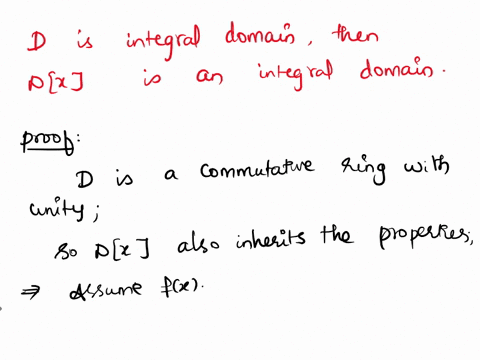 D is integral domain, then
D[x] is an integral domain.
proof:
D is a commutative ring with
unity;
so D[x] also inherits the properties;
⇒ Assume f(x).